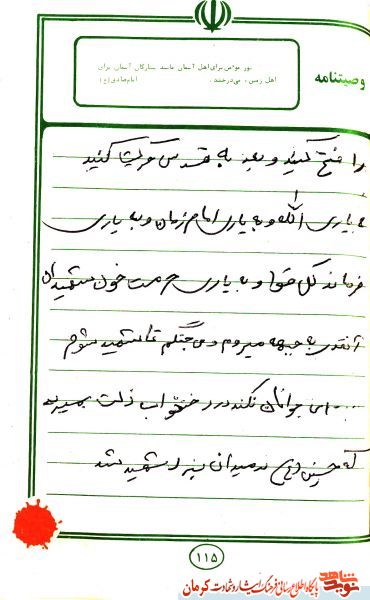 وصیتنامه
نور مؤمن برای اهل آسمان مانند ستارگان آسمان برای
اهل زمین، می‌درخشد. امام صادق (ع)
را فتح کنید و بعد به قدس
بیاری الله و به یاری امام زمان و به یاری
فرمانده کل قوا و به یاری حرمت خون شهیدان
آنقدر به جبهه میروم و می‌جنگم تا شهید شوم
... ای جوانان نکند در رختخواب ذلت بمیرید
که حسین (ع) در میدان نبرد شهید شد
۱۱۵
نوید شاهد
پایگاه اطلاع رسانی فرهنگ ایثار و شهادت کرمان